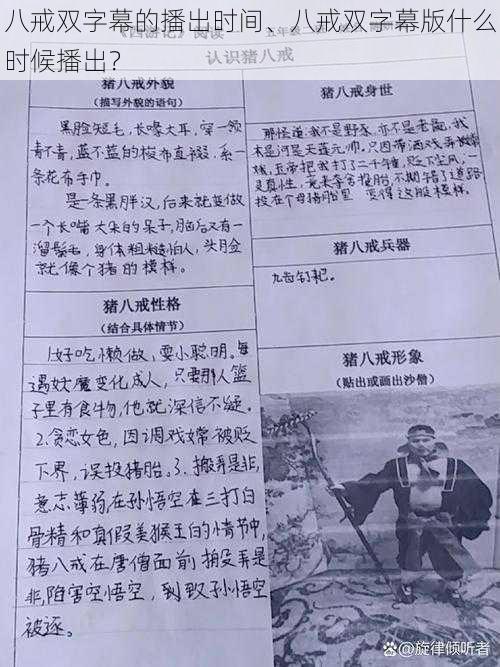 八戒双字幕的播出时间、八戒双字幕版什么
时候播出？
《西游记》阅读
认识猪八戒
猪八戒外貌
（描写外貌的语句）
黑脸短毛，长喙大耳，穿一领
青不青，蓝不蓝的梭布直裰，系一
条花布手巾。
是一条黑胖汉，后来就变做
一个长嘴大朵的呆子，脑后又有一
溜鬃毛，身体粗糙怕人，头脸
就像个猪的模样。
猪八戒性格
（结合具体情节）
1.好吃懒做，耍小聪明。每
遇妖魔变化成人，只要那人篮
子里有食物，他就深信不疑。
2.贪恋女色，因调戏嫦被贬
下界，误投猪胎。3.搬弄是非，
意志薄弱，在孙悟空在三打白
骨精和真假美猴王的情节中，
猪八戒在唐僧面前搬弄是
非，陷害空悟空，到致孙悟空
被逐。
猪八戒身世
那怪道：我不是野豕，亦不是老彘，我
本是河是天蓬元帅，只因带酒戏弄嫦
娥，玉帝把我打了二千锤，贬下尘凡，一
灵真性，竟来夺舍投胎，不期错了道路
投在个母猪胎里 变得这般模样。
猪八戒兵器
九齿钉耙。
猪八戒形象
（贴出或画出沙僧）
@旋律倾听者